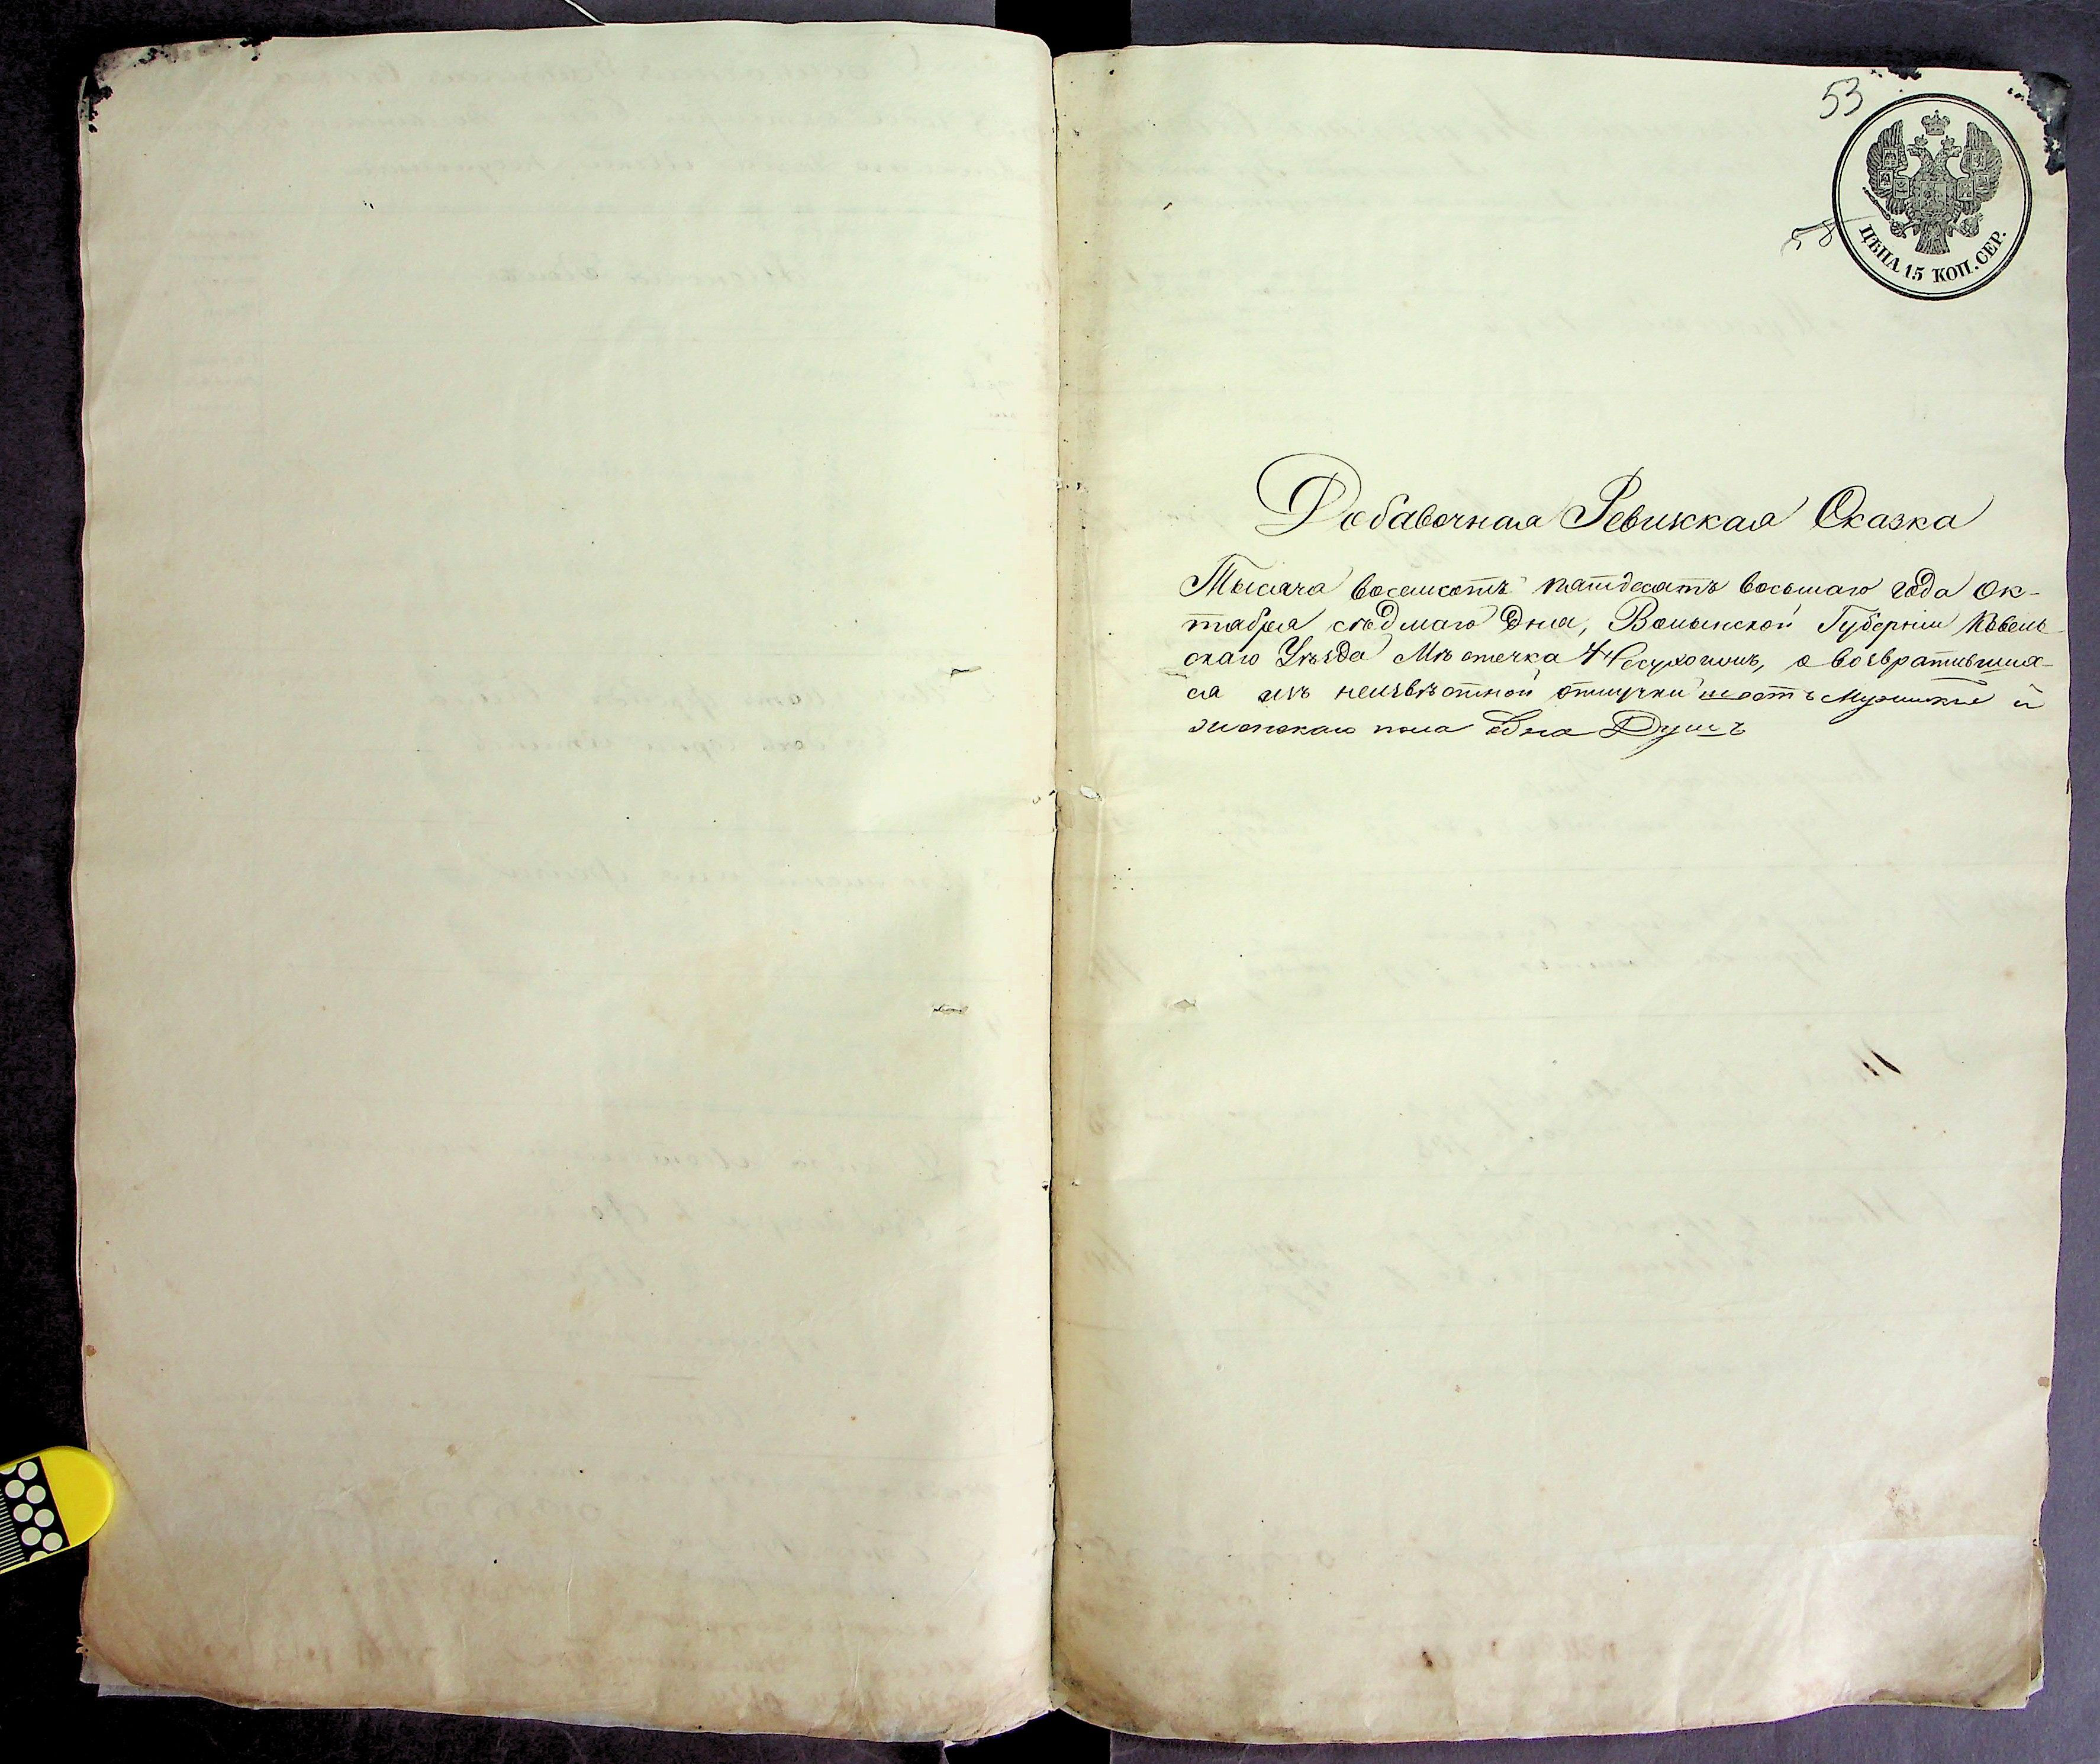 53
ЦѢНА 15 КОП. СЕР.
Добавочная Ревижская Сказка
Тысяча восемсотъ пятдесятъ восьмаго года Ок-
тября сѣдмаго Дня, Волынской Губерніи Ковель-
скаго Уѣзда Мѣстечка Несухоижъ, о возвративших-
ся изъ неизвѣстной отлучки шесть Мужиска и
женскаго пола Одна Душъ